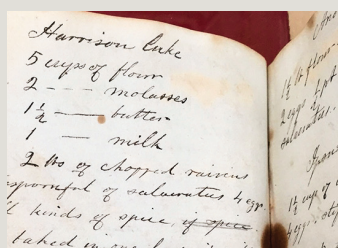 Harrison Cake
5 cups of flour
2 - - - molasses
1 1/2 — butter
1 — milk
2 lbs of chopped raisins
spoonful of salaeratus 4 eggs
kinds of spice, if spice
baked in one
And
1 1/2 lb flour
2 eggs 1/2 pt
salaeratus
1 1/2 cup of
4 eggs